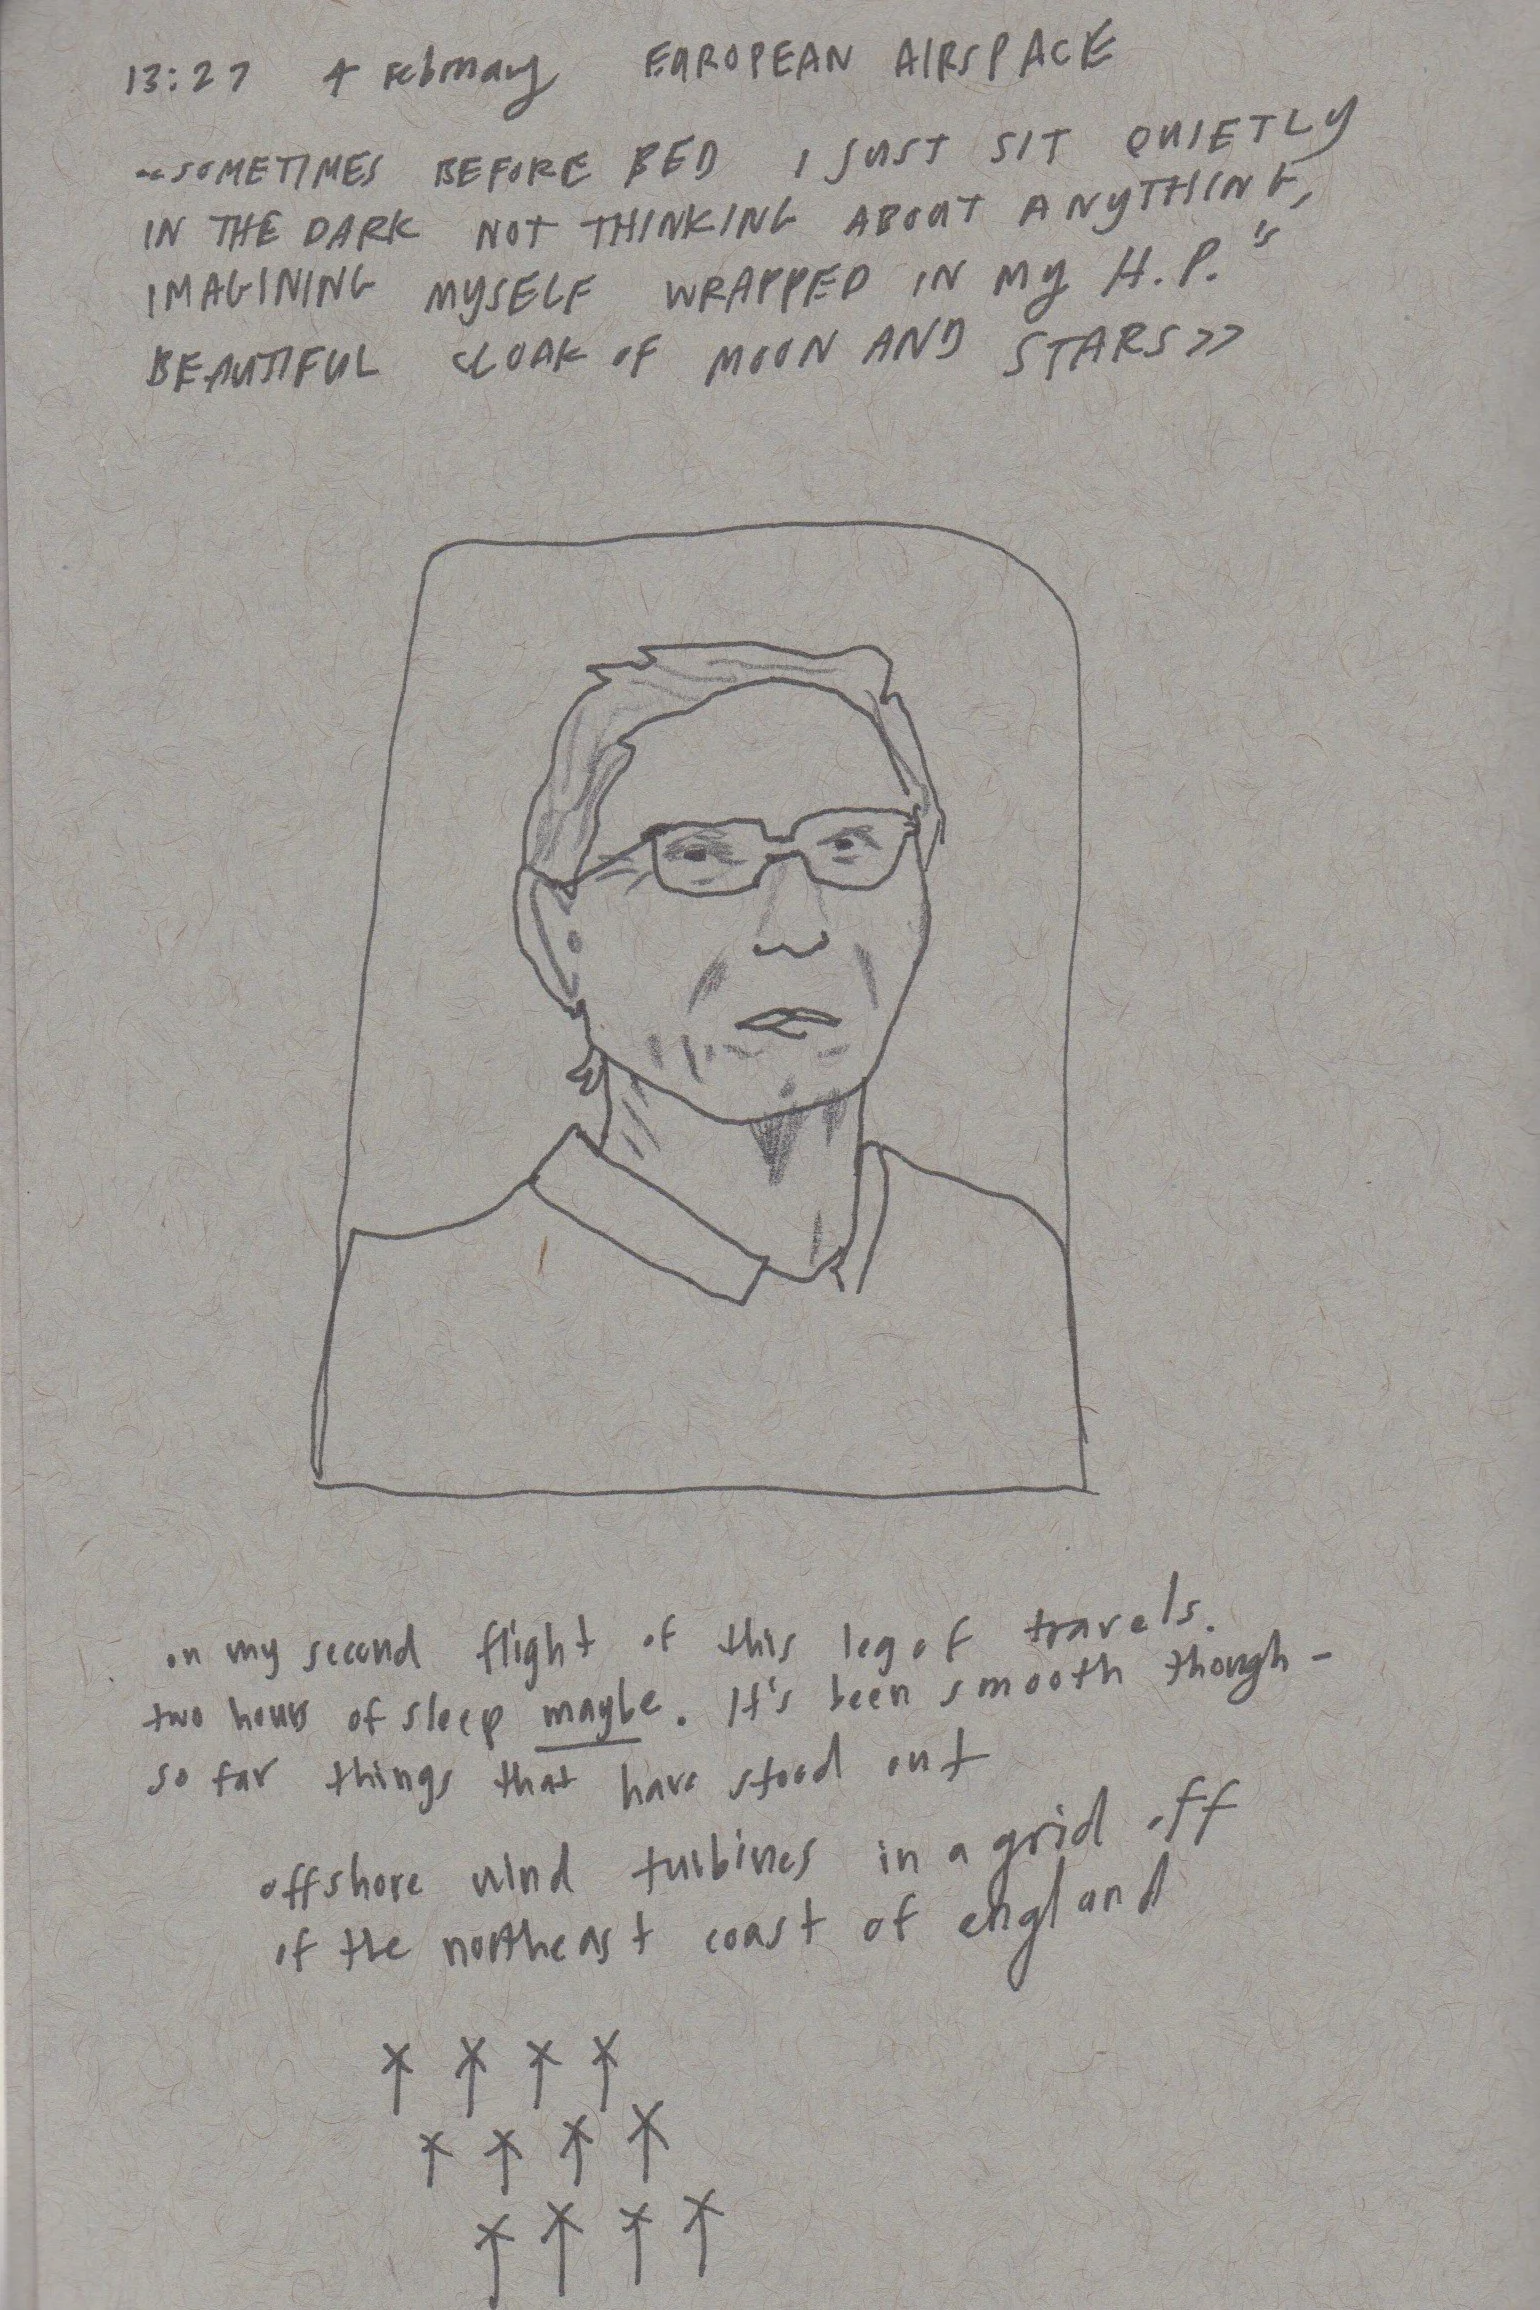 13:27 4 February EUROPEAN AIRSPACE
<<SOMETIMES BEFORE BED I JUST SIT QUIETLY
IN THE DARK NOT THINKING ABOUT ANYTHING,
IMAGINING MYSELF WRAPPED IN MY H.P.'s
BEAUTIFUL CLOAK OF MOON AND STARS>>
on my second flight of this leg of travels.
two hours of sleep maybe. It's been smooth though -
so far things that have stood out
offshore wind turbines in a grid off
of the northeast coast of england